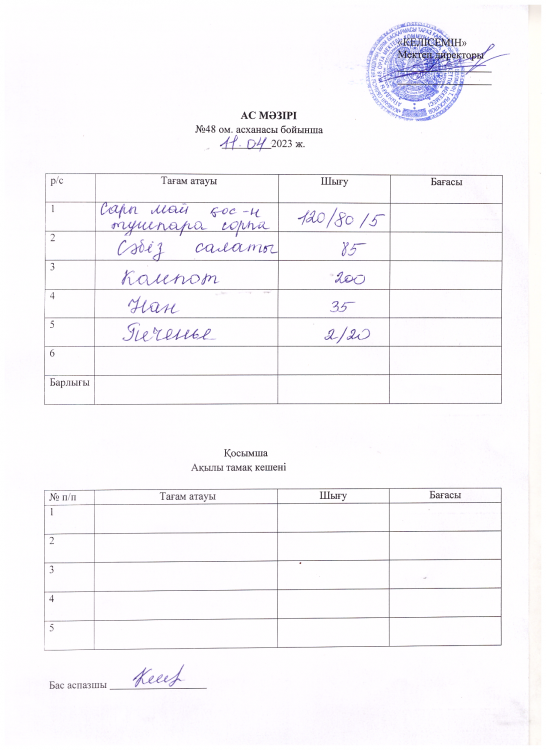 «КЕЛІСЕМІН»
Мектеп директоры
АС МӘЗІРІ
№48 ом. асханасы бойынша
11.04 2023 ж.
р/с Тағам атауы Шығу Бағасы
1 Сары май қос-н тушпара сорпа 120/80/5
2 Сәбіз салаты 85
3 Компот 200
4 Нан 35
5 Печенье 2/20
6
Барлығы
Қосымша
Ақылы тамақ кешені
№ п/п Тағам атауы Шығу Бағасы
1
2
3
4
5
Бас аспазшы